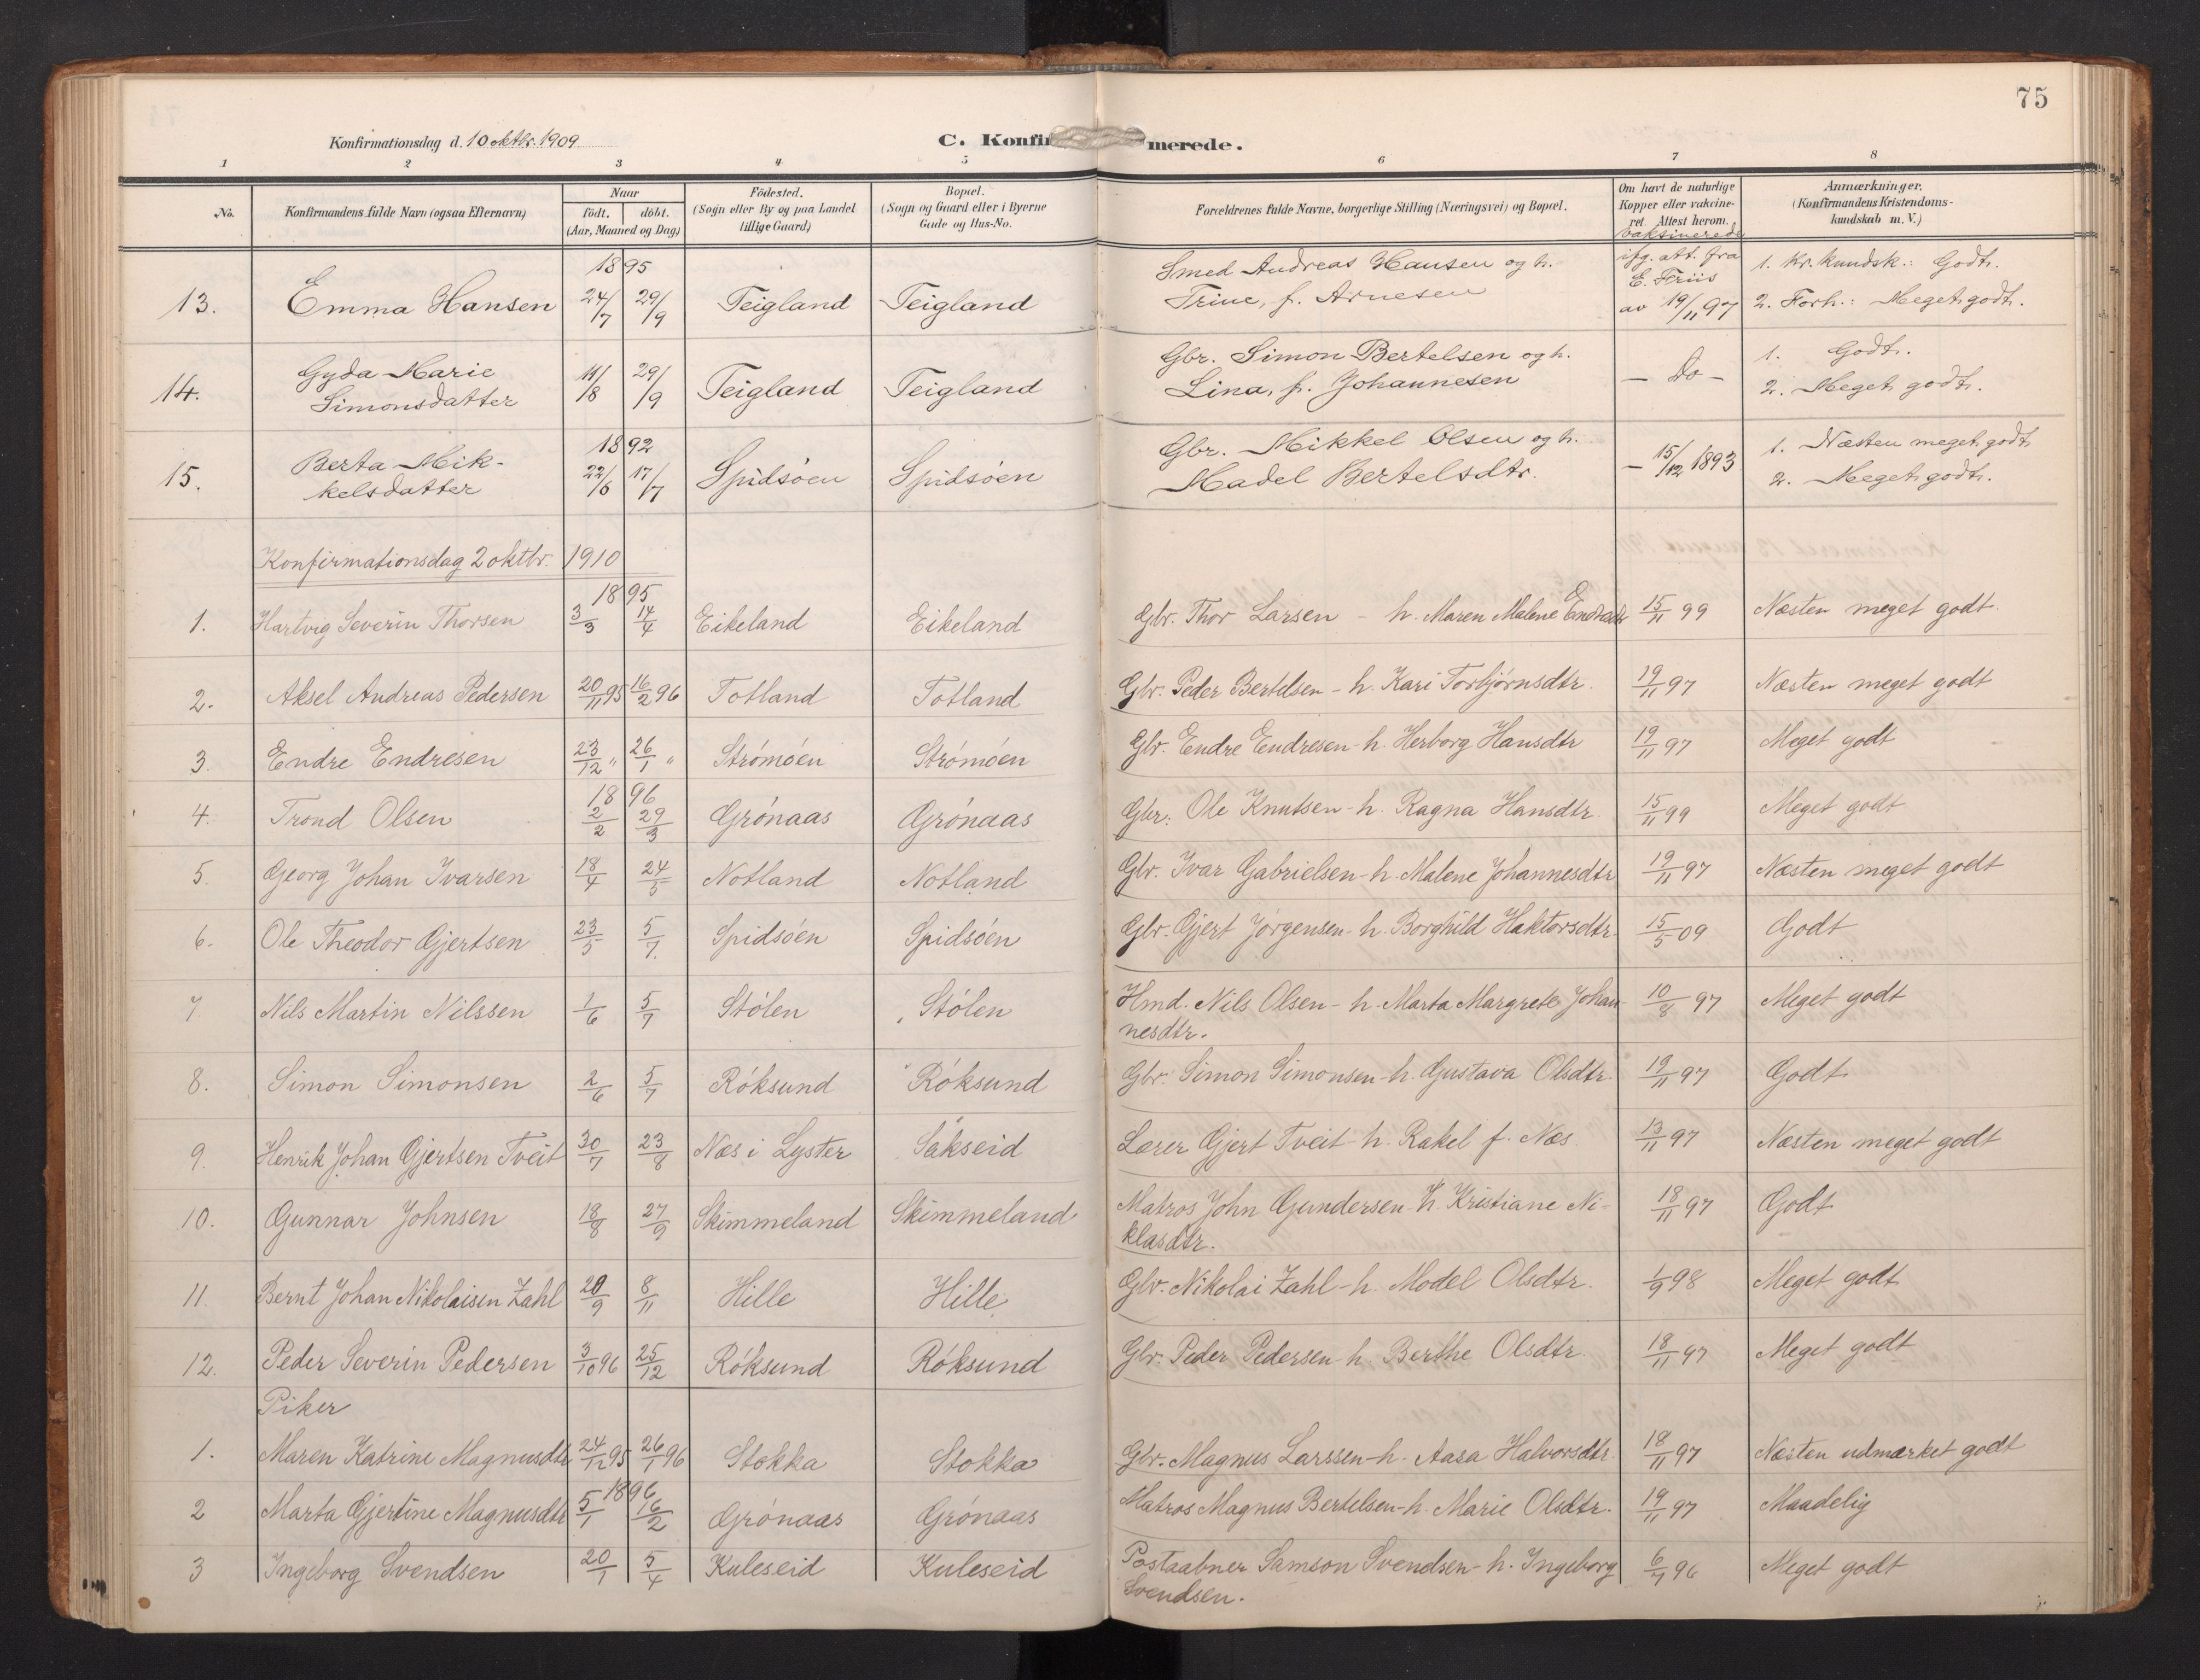 75
Konfirmationsdag d. 10 oktbr. 1909
C. Konfirmerede.
1 2 3 4 5 6 7 8
No. Konfirmandens fulde Navn (ogsaa Efternavn) Naar födt. döbt. (Aar, Maaned og Dag) Födested. (Sogn eller By og paa Landet tillige Gaard) Bopæl. (Sogn og Gaard eller i Byerne Gade og Hus-No. Forældrenes fulde Navne, borgerlige Stilling (Næringsvei) og Bopæl. Om havt de naturlige Kopper eller vakcineret. Attest herom. Anmærkninger. (Konfirmandens Kristendomskundskab m. V.)
vaksinerede
1895
13. Emma Hansen 24/7 29/9 Teigland Teigland Smed Andreas Hansen og h. ifg. att. fra 1. Kr. kundsk.: Godt.
Trine, f. Arnesen E. Friis av 19/11 97 2. Forh.: Meget godt.
14. Gyda Marie Simonsdatter 11/8 29/9 Teigland Teigland Gbr. Simon Bertelsen og h. — Do — 1. Godt.
Lina, f. Johannesen 2. Meget godt.
1892
15. Berta Mikkelsdatter 22/6 17/7 Spidsöen Spidsöen Gbr. Mikkel Olsen og h. — 15/12 1893 1. Næsten meget godt
Madel Bertelsdtr. 2. Meget godt.
Konfirmationsdag 2 oktbr. 1910
1895
1. Hartvig Severin Thorsen 3/3 14/4 Eikeland Eikeland Gbr. Thor Larsen - h. Maren Malene 15/11 99 Næsten meget godt.
2. Aksel Andreas Pedersen 20/11 95 16/2 96 Totland Totland Gbr. Peder Bertelsen - h. Kari Torbjørnsdtr. 19/11 97 Næsten meget godt
3. Endre Endresen 23/12 " 26/1 " Strömöen Strömöen Gbr. Endre Endresen - h. Herborg Hansdtr 19/11 97 Meget godt
1896
4. Trond Olsen 2/2 29/3 Grönaas Grönaas Gbr: Ole Knutsen - h. Ragna Hansdtr. 15/11 99 Meget godt
5. Georg Johan Ivarsen 18/4 24/5 Notland Notland Gbr. Ivar Gabrielsen - h. Malene Johannesdtr 19/11 97 Næsten meget godt
6. Ole Theodor Gjertsen 23/5 5/7. Spidsöen Spidsöen Gbr. Gjert Jørgensen - h. Borghild Haktorsdtr. 15/5 09 Godt
7 Nils Martin Nilssen 1/6 5/7 Stölen Stölen Hmd. Nils Olsen - h. Marta Margrete Johan- 10/8 97 Meget godt
nesdtr.
8. Simon Simonsen 2/6 5/7 Röksund Röksund Gbr. Simon Simonsen - h. Gustava Olsdtr. 19/11 97 Godt
9. Henrik Johan Gjertsen Tveit 30/7 23/8 Næs i Lyster Sakseid Lærer Gjert Tveit - h. Rakel f. Næs. 13/11 97 Næsten meget godt
10. Gunnar Johnsen 18/8 27/9 Skimmeland Skimmeland Matros John Gundersen - h. Kristiane Ni- 18/11 97 Godt
klasdtr.
11. Bernt Johan Nikolaisen Zahl 20/9 8/11 Hille Hille Gbr. Nikolai Zahl - h. Model Olsdtr. 1/9 98 Meget godt
12. Peder Severin Pedersen 3/10 96 25/12 Röksund Röksund Gbr. Peder Pedersen - h. Berthe Olsdtr. 18/11 97 Meget godt
Piker
1. Maren Katrine Magnusdtr 24/12 95 26/1 96 Stokka Stokka Gbr. Magnus Larssen - h. Aasa Halvorsdtr. 18/11 97 Næsten udmærket godt
1896
2 Marta Gjertine Magnusdtr 5/1 16/2 Grönaas Grönaas Matros Magnus Bertelsen - h. Marie Olsdtr. 19/11 97 Maadelig
3 Ingeborg Svendsen 20/1 5/4 Kuleseid Kuleseid Postaabner Samson Svendsen - h. Ingeborg 6/7 96 Meget godt
Svendsen.